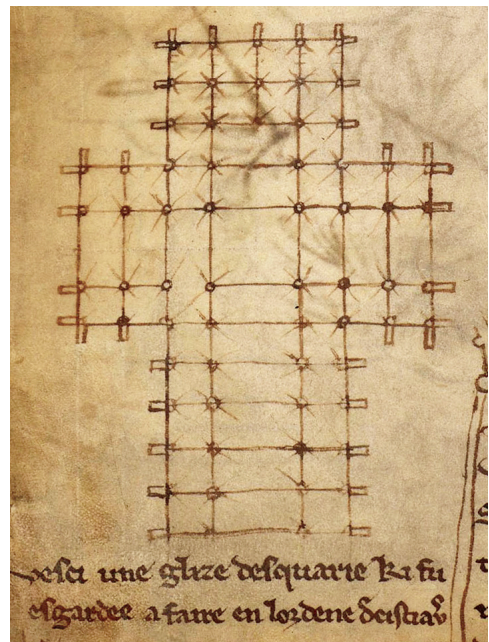 vesci une glize desquarie ki fu
esgardee a faire en lordene